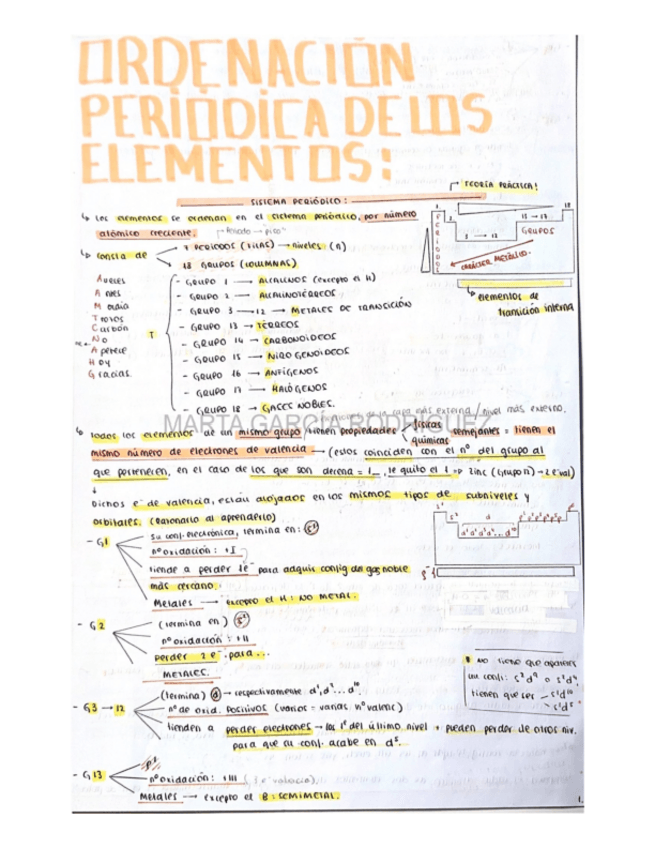 ORDENACIÓN
PERIÓDICA DE LOS
ELEMENTOS:
TEORÍA PRÁCTICA!
SISTEMA PERIÓDICO:
↳ Los elementos se ordenan en el sistema periódico, por número
atómico creciente.
↳ consta de
7 PERIODOS (FILAS) → niveles (n)
18 GRUPOS (COLUMNAS)
1 18
2 13 → 17
3 → 12 GRUPOS
PERIODOS
CARÁCTER METÁLICO.
↳ elementos de
transición interna
Aneles
Mordía
Trozos
Carbón
No
Apetece
Hoy
Gracias.
T
- GRUPO 1 → ALCALINOS (excepto el H)
- GRUPO 2 → ALCALINOTÉRREOS
- GRUPO 3 → 12 → METALES DE TRANSICIÓN
- GRUPO 13 → TÉRREOS
- GRUPO 14 → CARBONOIDEOS
- GRUPO 15 → NIROGENOIDEOS
- GRUPO 16 → ANFÍGENOS
- GRUPO 17 → HALÓGENOS
- GRUPO 18 → GASES NOBLES.
capa más externa / nivel más externo.
MARTA GARCÍA RODRÍGUEZ
↳ Todos los elementos de un mismo grupo tienen propiedades físicas químicas semejantes = tienen el
mismo número de electrones de valencia → (estos coinciden con el nº del grupo al
que pertenecen, en el caso de los que son decena = 1_, le quito el 1 => zinc (Grupo 12) → 2 e⁻ val)
↓
Dichos e⁻ de valencia, están alojados en los mismos tipos de subniveles y
orbitales. (Razonarlo al aprenderlo)
- G1
su conf. electrónica, termina en: s¹
nº oxidación: +I
tiende a perder 1e⁻ para adquirir config de gas noble
más cercano.
Metales → excepto el H: NO METAL.
- G2
(termina en) s²
nº oxidación: +II
perder 2 e⁻ para...
METALES.
- G3 → 12
(termina) d → respectivamente d¹, d²... d¹⁰
nº de oxid. POSITIVOS (varios = varias nº valenc)
tienden a perder electrones → los 1º del último nivel + pueden perder de otros niv.
para que su conf. acabe en d⁵.
NO tiene que aparecer
un conf: s²d⁹ o s²d⁴.
tienen que ser - s¹d¹⁰
- s¹d⁵
- G13
nº oxidación: +III (3 e⁻ valencia).
Metales → excepto el B: SEMIMETAL.
1.